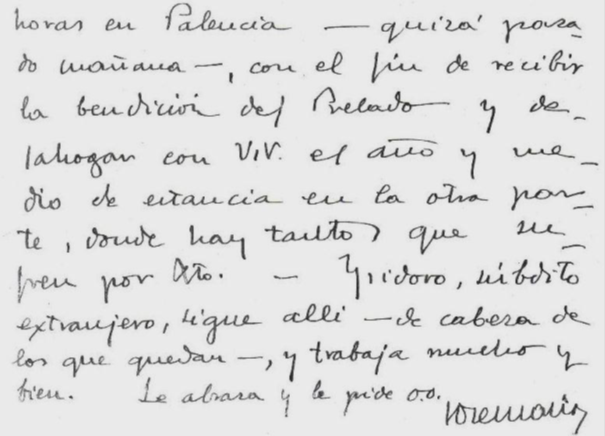 horas en Palencia — quizá pasa-
do mañana —, con el fin de recibir
la bendición del Prelado y de-
sahogar con VV. el año y me-
dio de estancia en la otra par-
te, donde hay tantos que su-
fren por Xto. — Ysidoro, súbdito
extranjero, sigue allí — de cabeza de
los que quedan —, y trabaja mucho y
bien. Le abraza y le pide o.o.
Josemaría